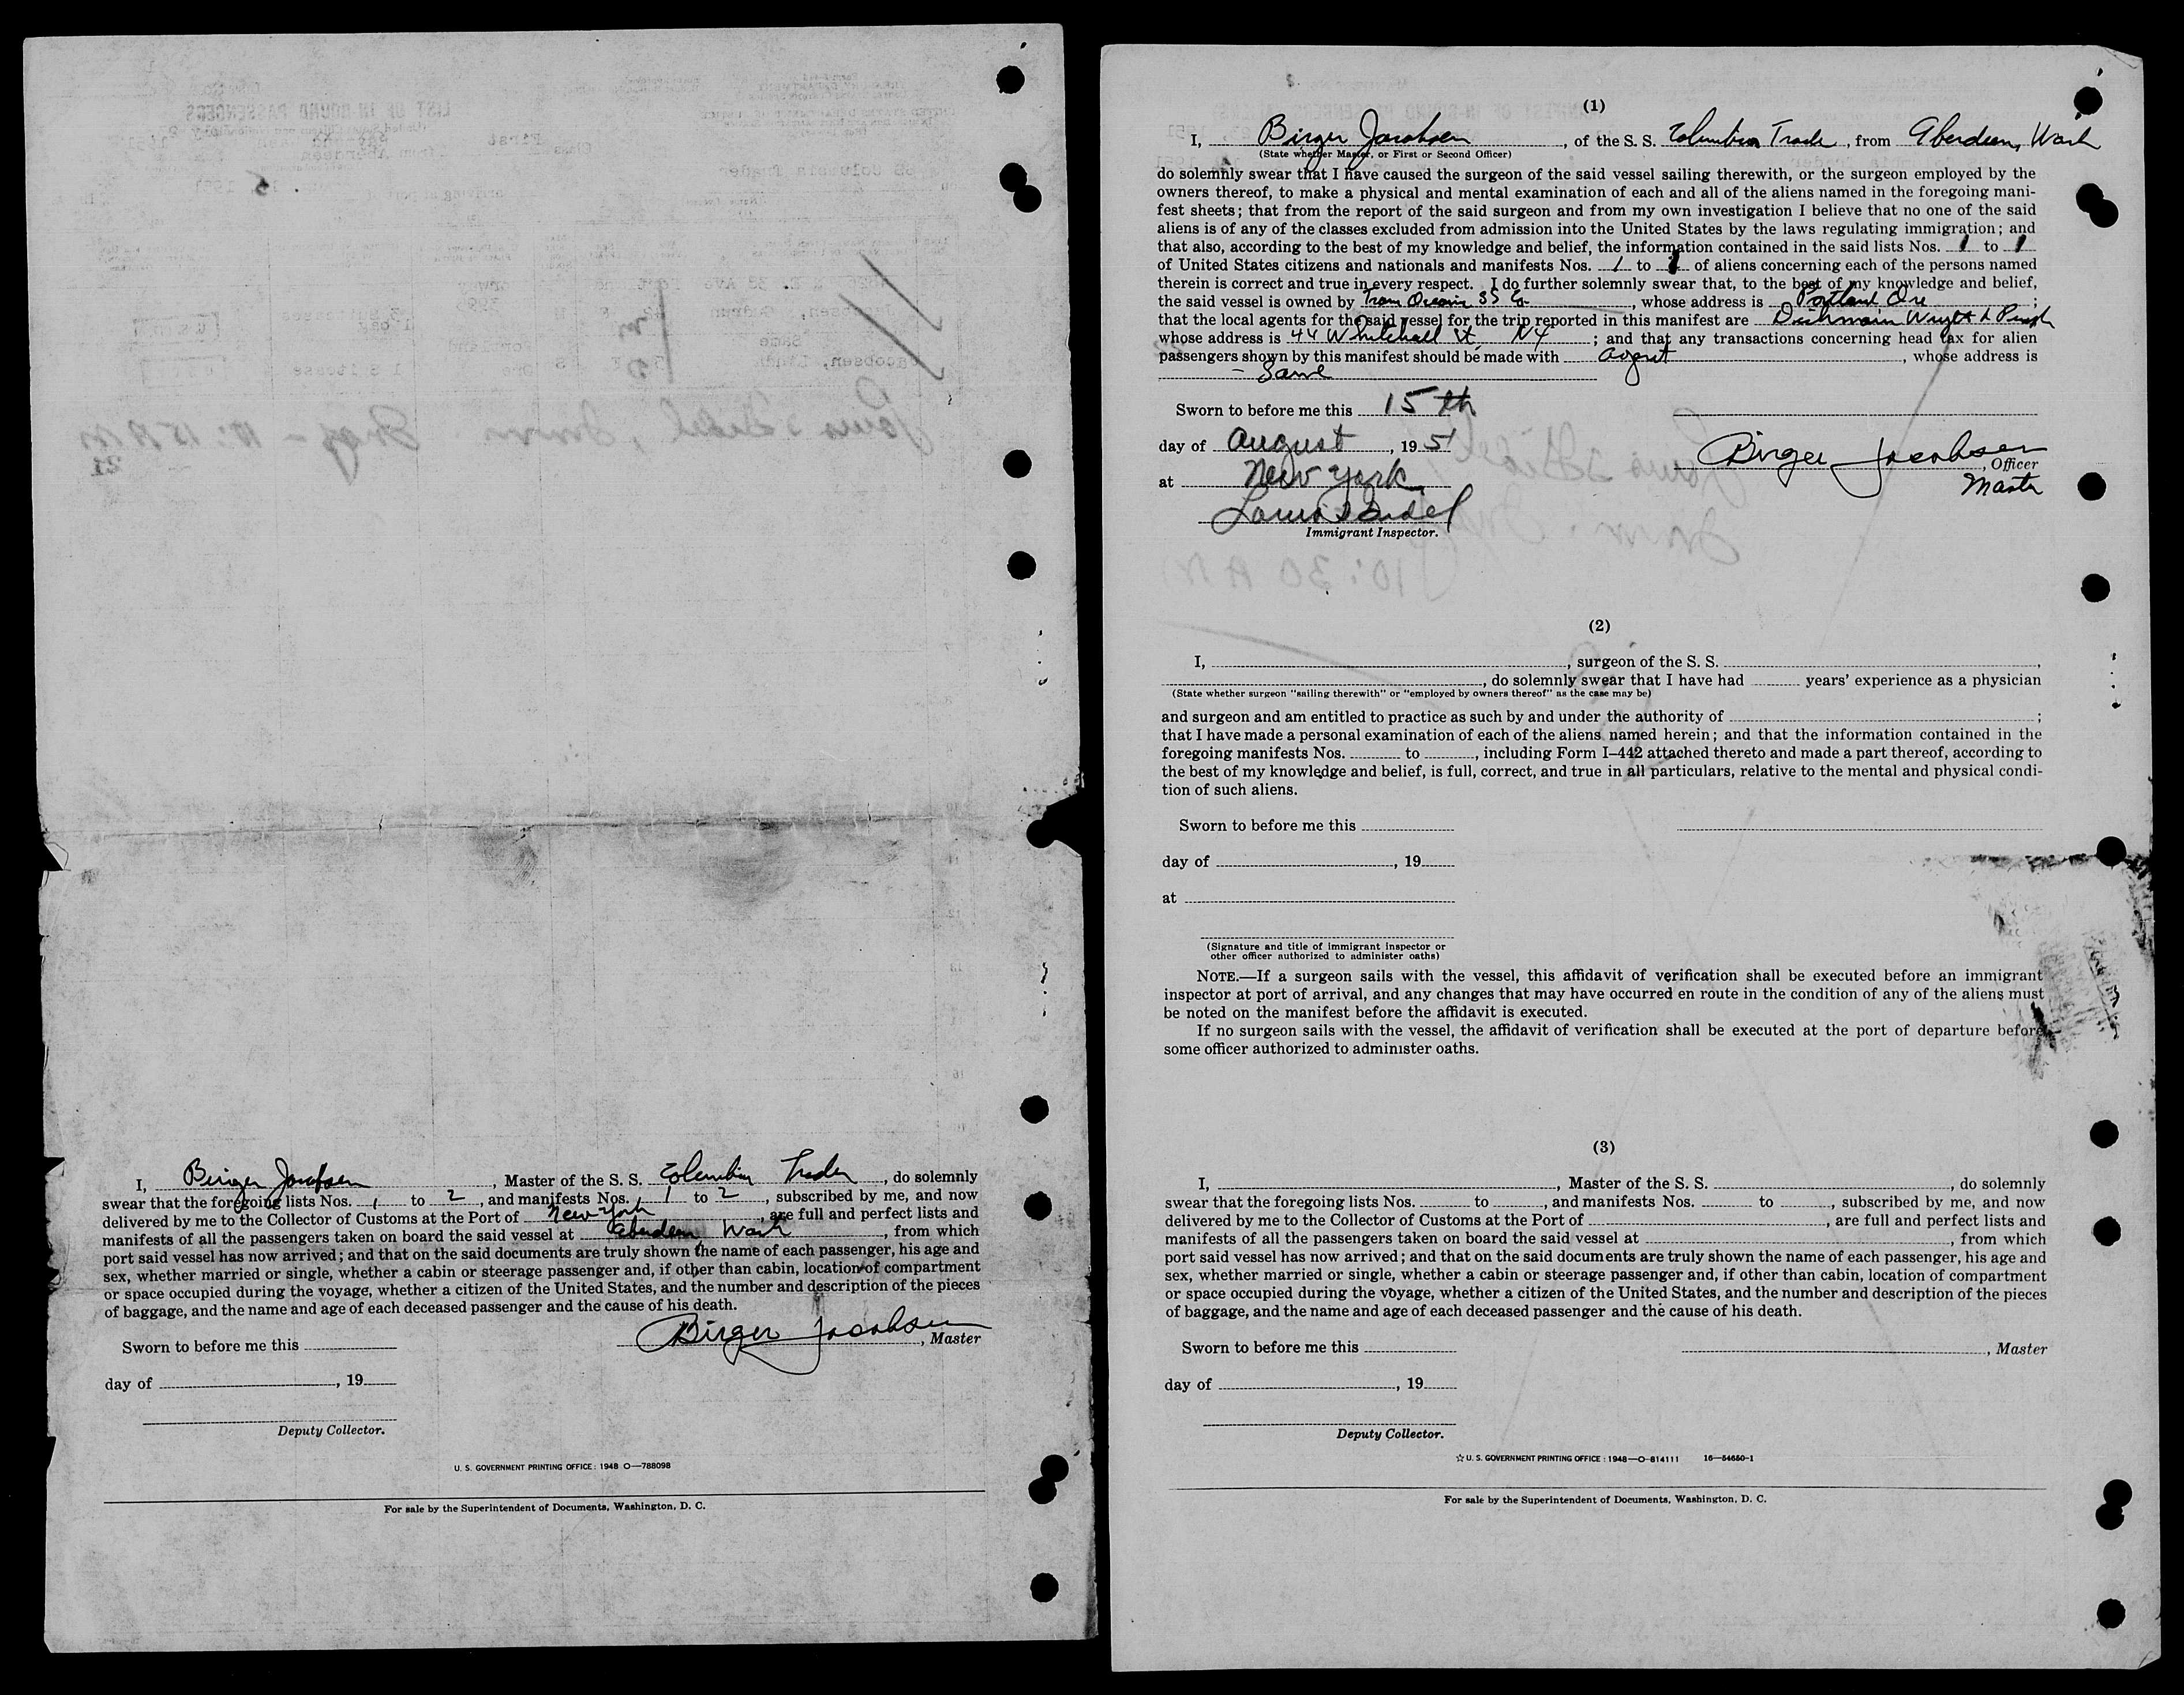 I, Birger Jacobsen, Master of the S. S. Columbia Trader, do solemnly
swear that the foregoing lists Nos. 1 to 2, and manifests Nos. 1 to 2, subscribed by me, and now
delivered by me to the Collector of Customs at the Port of New York, are full and perfect lists and
manifests of all the passengers taken on board the said vessel at Aberdeen Wash, from which
port said vessel has now arrived; and that on the said documents are truly shown the name of each passenger, his age and
sex, whether married or single, whether a cabin or steerage passenger and, if other than cabin, location of compartment
or space occupied during the voyage, whether a citizen of the United States, and the number and description of the pieces
of baggage, and the name and age of each deceased passenger and the cause of his death.
Birger Jacobsen, Master
Sworn to before me this
day of , 19
Deputy Collector.
U. S. GOVERNMENT PRINTING OFFICE: 1948 O—788098
For sale by the Superintendent of Documents, Washington, D. C.
(1)
I, Birger Jacobsen, of the S. S. Columbia Trader, from Aberdeen, Wash
(State whether Master, or First or Second Officer)
do solemnly swear that I have caused the surgeon of the said vessel sailing therewith, or the surgeon employed by the
owners thereof, to make a physical and mental examination of each and all of the aliens named in the foregoing mani-
fest sheets; that from the report of the said surgeon and from my own investigation I believe that no one of the said
aliens is of any of the classes excluded from admission into the United States by the laws regulating immigration; and
that also, according to the best of my knowledge and belief, the information contained in the said lists Nos. 1 to 1
of United States citizens and nationals and manifests Nos. 1 to 1 of aliens concerning each of the persons named
therein is correct and true in every respect. I do further solemnly swear that, to the best of my knowledge and belief,
the said vessel is owned by Trans Oceanic SS Co, whose address is Portland Ore;
that the local agents for the said vessel for the trip reported in this manifest are Wright & Pugh
whose address is 44 Whitehall St NY; and that any transactions concerning head tax for alien
passengers shown by this manifest should be made with agent, whose address is
– Same
Sworn to before me this 15th
day of August, 1951
at New York
Birger Jacobsen, Officer
Master
Louis Seidel
Immigrant Inspector.
(2)
I, , surgeon of the S. S. ,
, do solemnly swear that I have had years' experience as a physician
(State whether surgeon "sailing therewith" or "employed by owners thereof" as the case may be)
and surgeon and am entitled to practice as such by and under the authority of ;
that I have made a personal examination of each of the aliens named herein; and that the information contained in the
foregoing manifests Nos. to , including Form I–442 attached thereto and made a part thereof, according to
the best of my knowledge and belief, is full, correct, and true in all particulars, relative to the mental and physical condi-
tion of such aliens.
Sworn to before me this
day of , 19
at
(Signature and title of immigrant inspector or
other officer authorized to administer oaths)
NOTE.—If a surgeon sails with the vessel, this affidavit of verification shall be executed before an immigrant
inspector at port of arrival, and any changes that may have occurred en route in the condition of any of the aliens must
be noted on the manifest before the affidavit is executed.
If no surgeon sails with the vessel, the affidavit of verification shall be executed at the port of departure before
some officer authorized to administer oaths.
(3)
I, , Master of the S. S. , do solemnly
swear that the foregoing lists Nos. to , and manifests Nos. to , subscribed by me, and now
delivered by me to the Collector of Customs at the Port of , are full and perfect lists and
manifests of all the passengers taken on board the said vessel at , from which
port said vessel has now arrived; and that on the said documents are truly shown the name of each passenger, his age and
sex, whether married or single, whether a cabin or steerage passenger and, if other than cabin, location of compartment
or space occupied during the voyage, whether a citizen of the United States, and the number and description of the pieces
of baggage, and the name and age of each deceased passenger and the cause of his death.
Sworn to before me this
, Master
day of , 19
Deputy Collector.
☆ U. S. GOVERNMENT PRINTING OFFICE : 1948—O–814111 16—54650-1
For sale by the Superintendent of Documents, Washington, D. C.